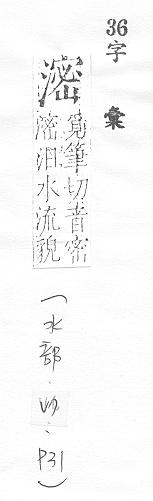 36字彙
滵
覓筆切音密
滵汨水流貌
(水部、、P31)